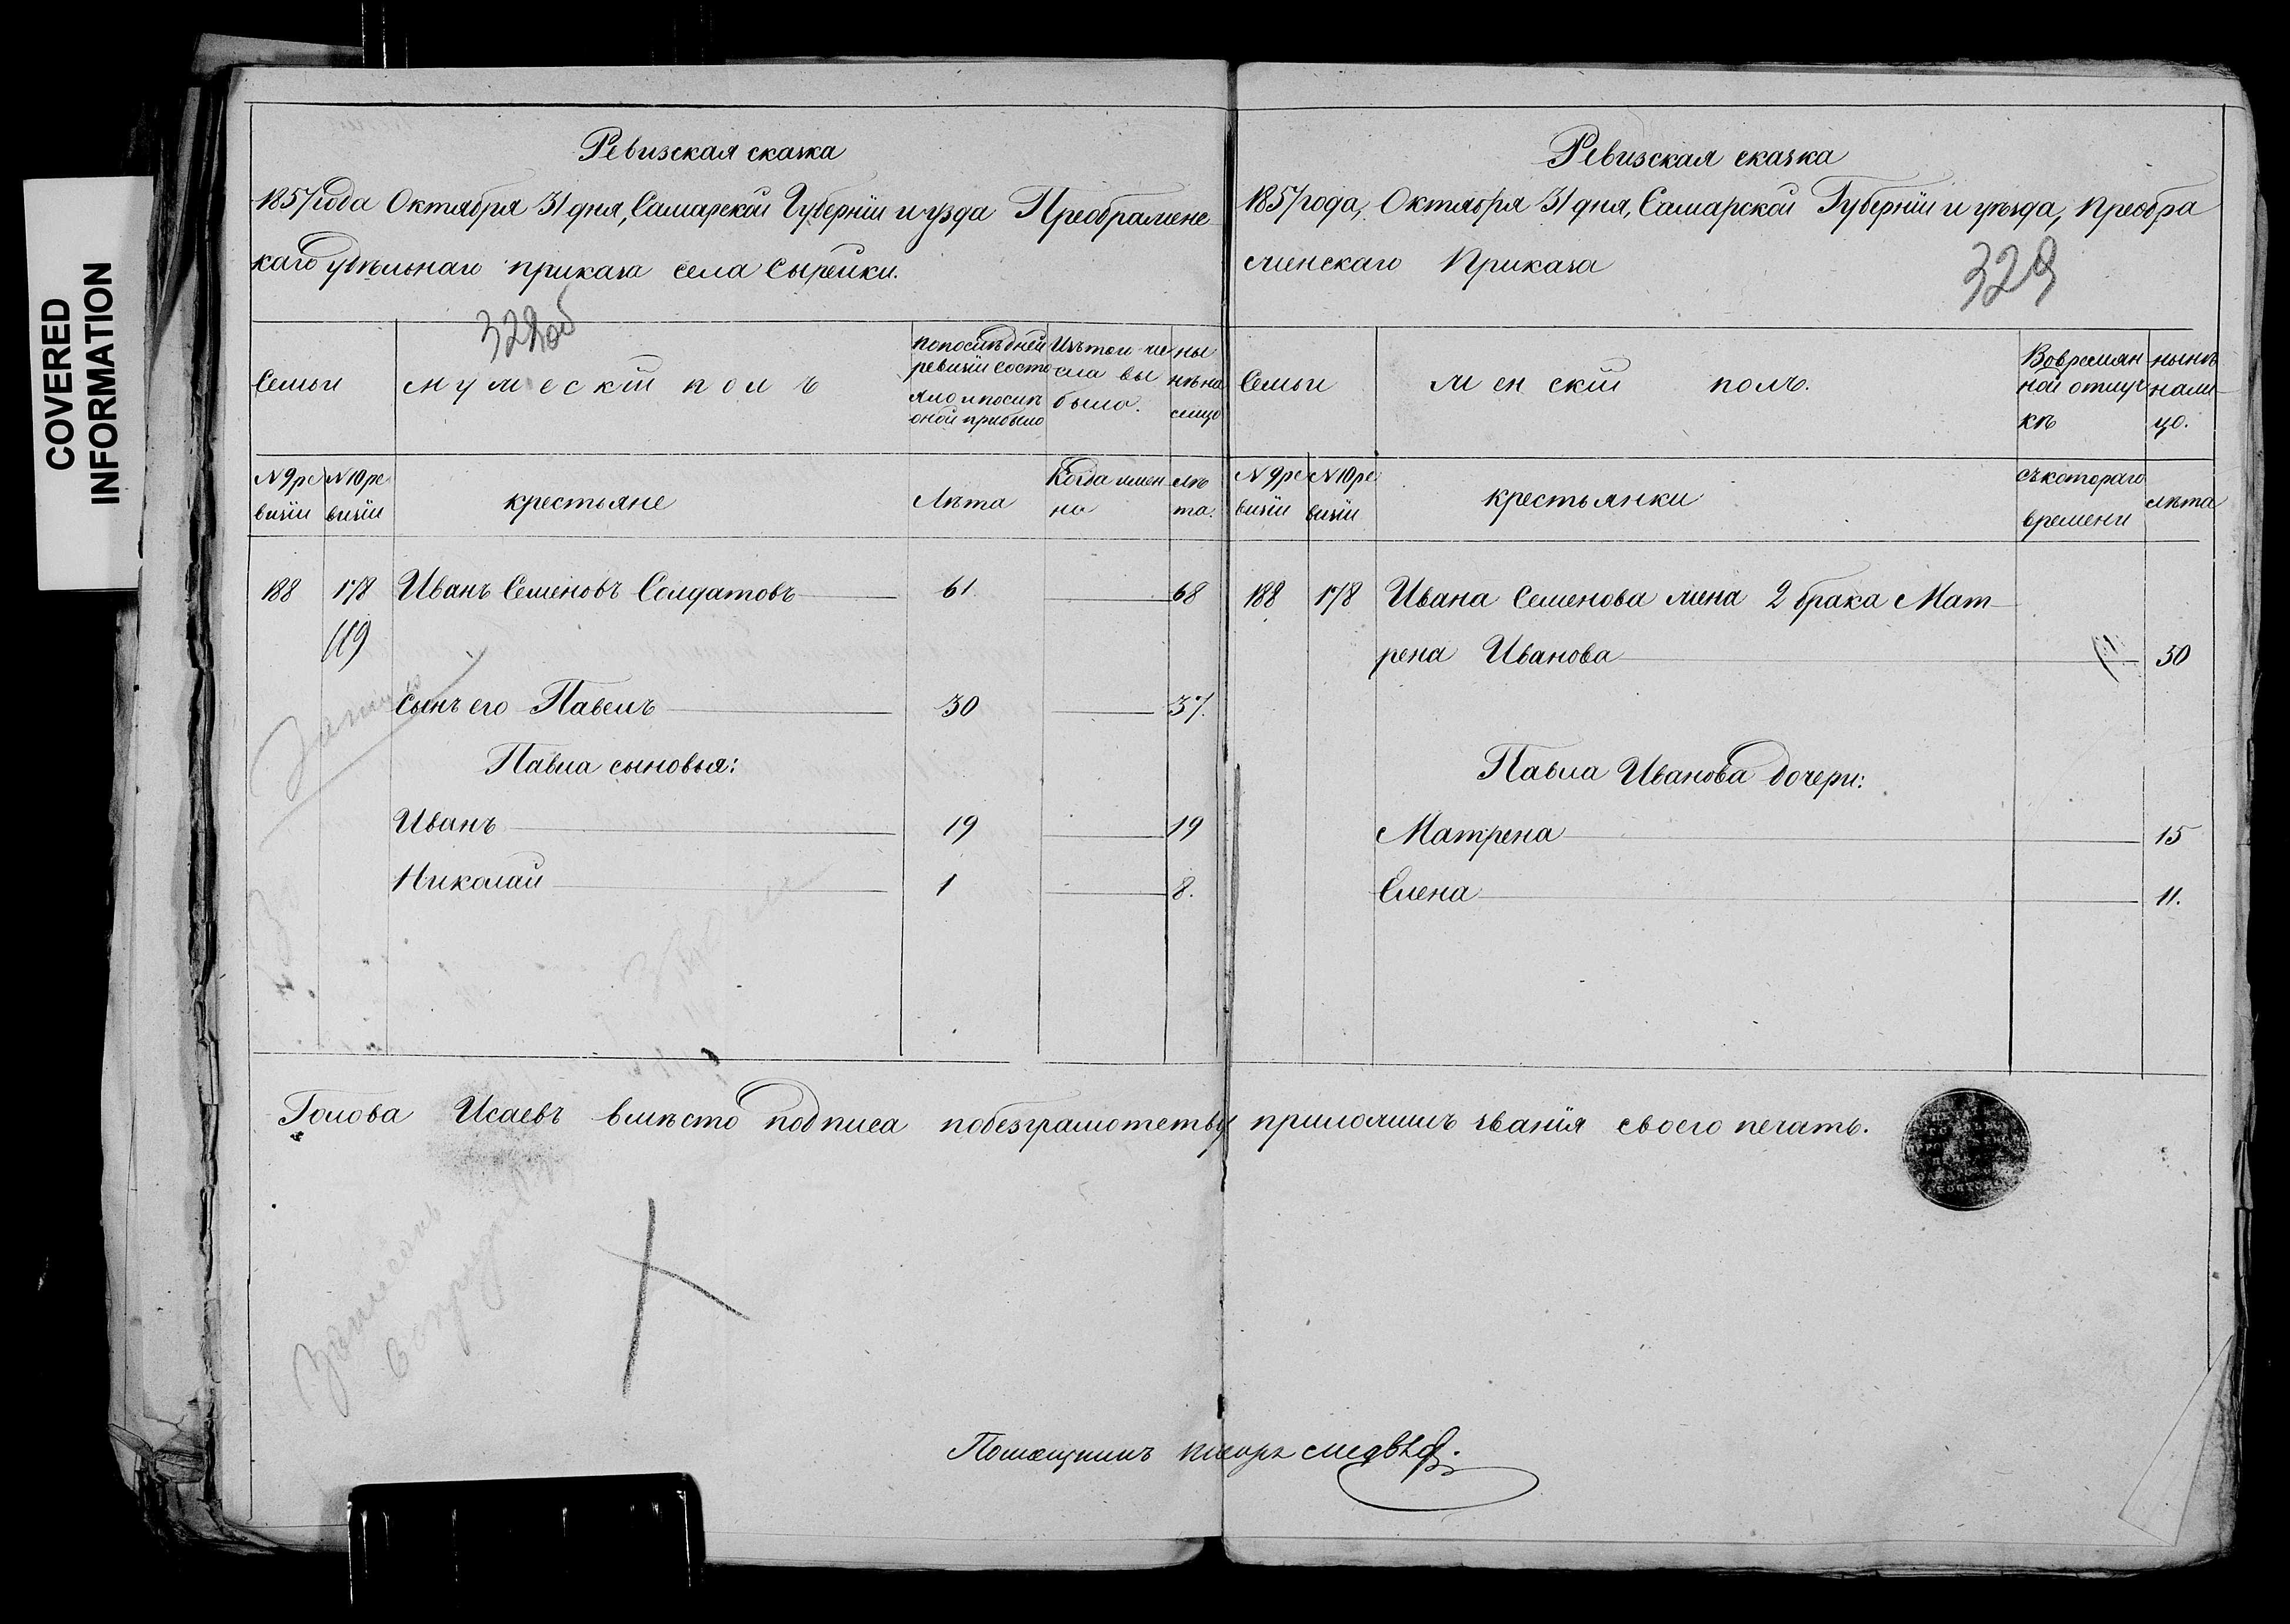 COVERED
INFORMATION
Ревизская сказка
1857 года Октября 31 дня, Самарской Губернiи и уѣзда Преображенс
каго удѣльнаго приказа села Сырейки.
Семьи
мужескiй полъ
по послѣдней
ревизiи состо
яло и послѣ
оной прибыло
Изъ того чи
сла вы
было.
ны
нѣ на
лицо
N 9 ре
визiи
N 10 ре
визiи
крестьяне
Лѣта
Когда имен
но
лѣ
та.
188 178 Иванъ Семеновъ Солдатовъ 61 68
сынъ его Павелъ 30 37.
Павла сыновья:
Иванъ 19 19
Николай 1 8.
Ревизская сказка
1857 года, Октября 31 дня, Самарской Губернiи и уѣзда, Преобра
женскаго Приказа
329
Семьи
женскiй полъ.
Во времян
ной отлуч
кѣ
нынѣ
нали
цо.
N 9 ре
визiи
N 10 ре
визiи
крестьянки
съ котораго
времени
лѣта
188 178 Ивана Семенова жена 2 брака Мат
рена Иванова 50
Павла Иванова дочери:
Матрена 15
Елена 11.
Голова Исаевъ вмѣсто подписа по безграмотству приложилъ званiя своего печать.